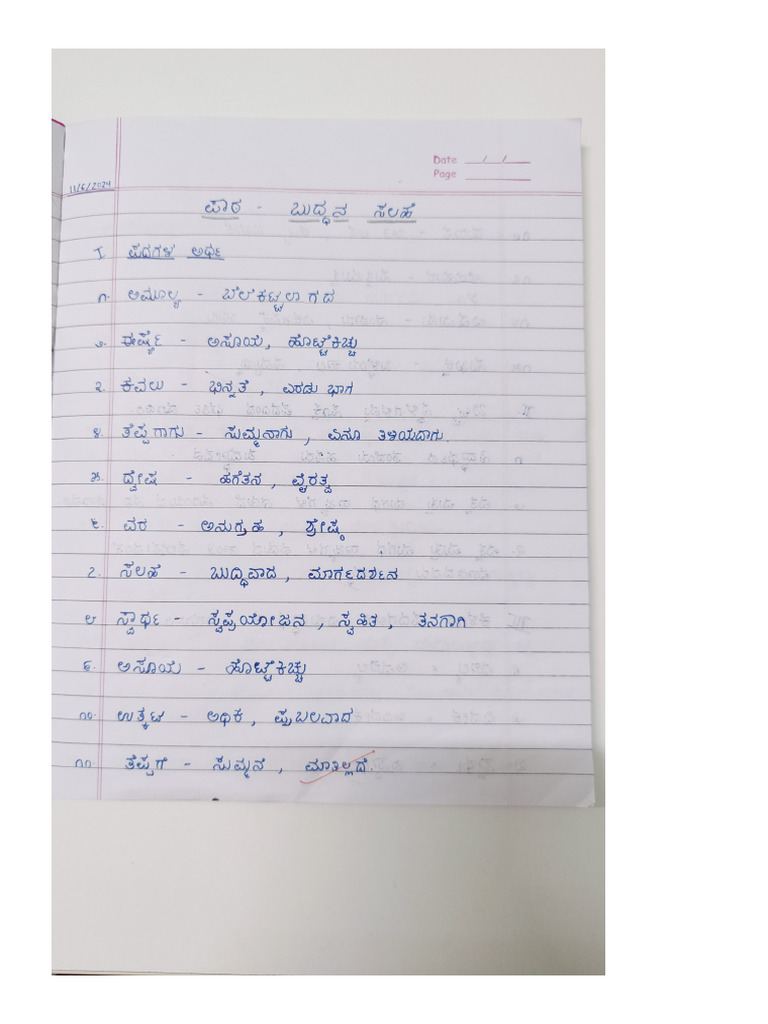 Date / /
Page
11/6/2024
ಪಾಠ - ಬುದ್ಧನ ಸಲಹೆ
I. ಪದಗಳ ಅರ್ಥ
೧. ಅಮೂಲ್ಯ - ಬೆಲೆಕಟ್ಟಲಾಗದ
೨. ಈರ್ಷ್ಯೆ - ಅಸೂಯೆ, ಹೊಟ್ಟೆಕಿಚ್ಚು
೩. ಕವಲು - ಭಿನ್ನತೆ, ಎರಡು ಭಾಗ
೪. ತೆಪ್ಪಗಾಗು - ಸುಮ್ಮನಾಗು, ಏನೂ ತಿಳಿಯದಾಗು.
೫. ದ್ವೇಷ - ಹಗೆತನ, ವೈರತ್ವ
೬. ವರ - ಅನುಗ್ರಹ, ಶ್ರೇಷ್ಠ
೭. ಸಲಹೆ - ಬುದ್ಧಿವಾದ, ಮಾರ್ಗದರ್ಶನ
೮. ಸ್ವಾರ್ಥ - ಸ್ವಪ್ರಯೋಜನ, ಸ್ವಹಿತ, ತನಗಾಗಿ
೯. ಅಸೂಯೆ - ಹೊಟ್ಟೆಕಿಚ್ಚು
೧೦. ಉತ್ಕಟ - ಅಧಿಕ, ಪ್ರಬಲವಾದ
೧೧. ತೆಪ್ಪಗೆ - ಸುಮ್ಮನೆ, ಮಾತಿಲ್ಲದೆ